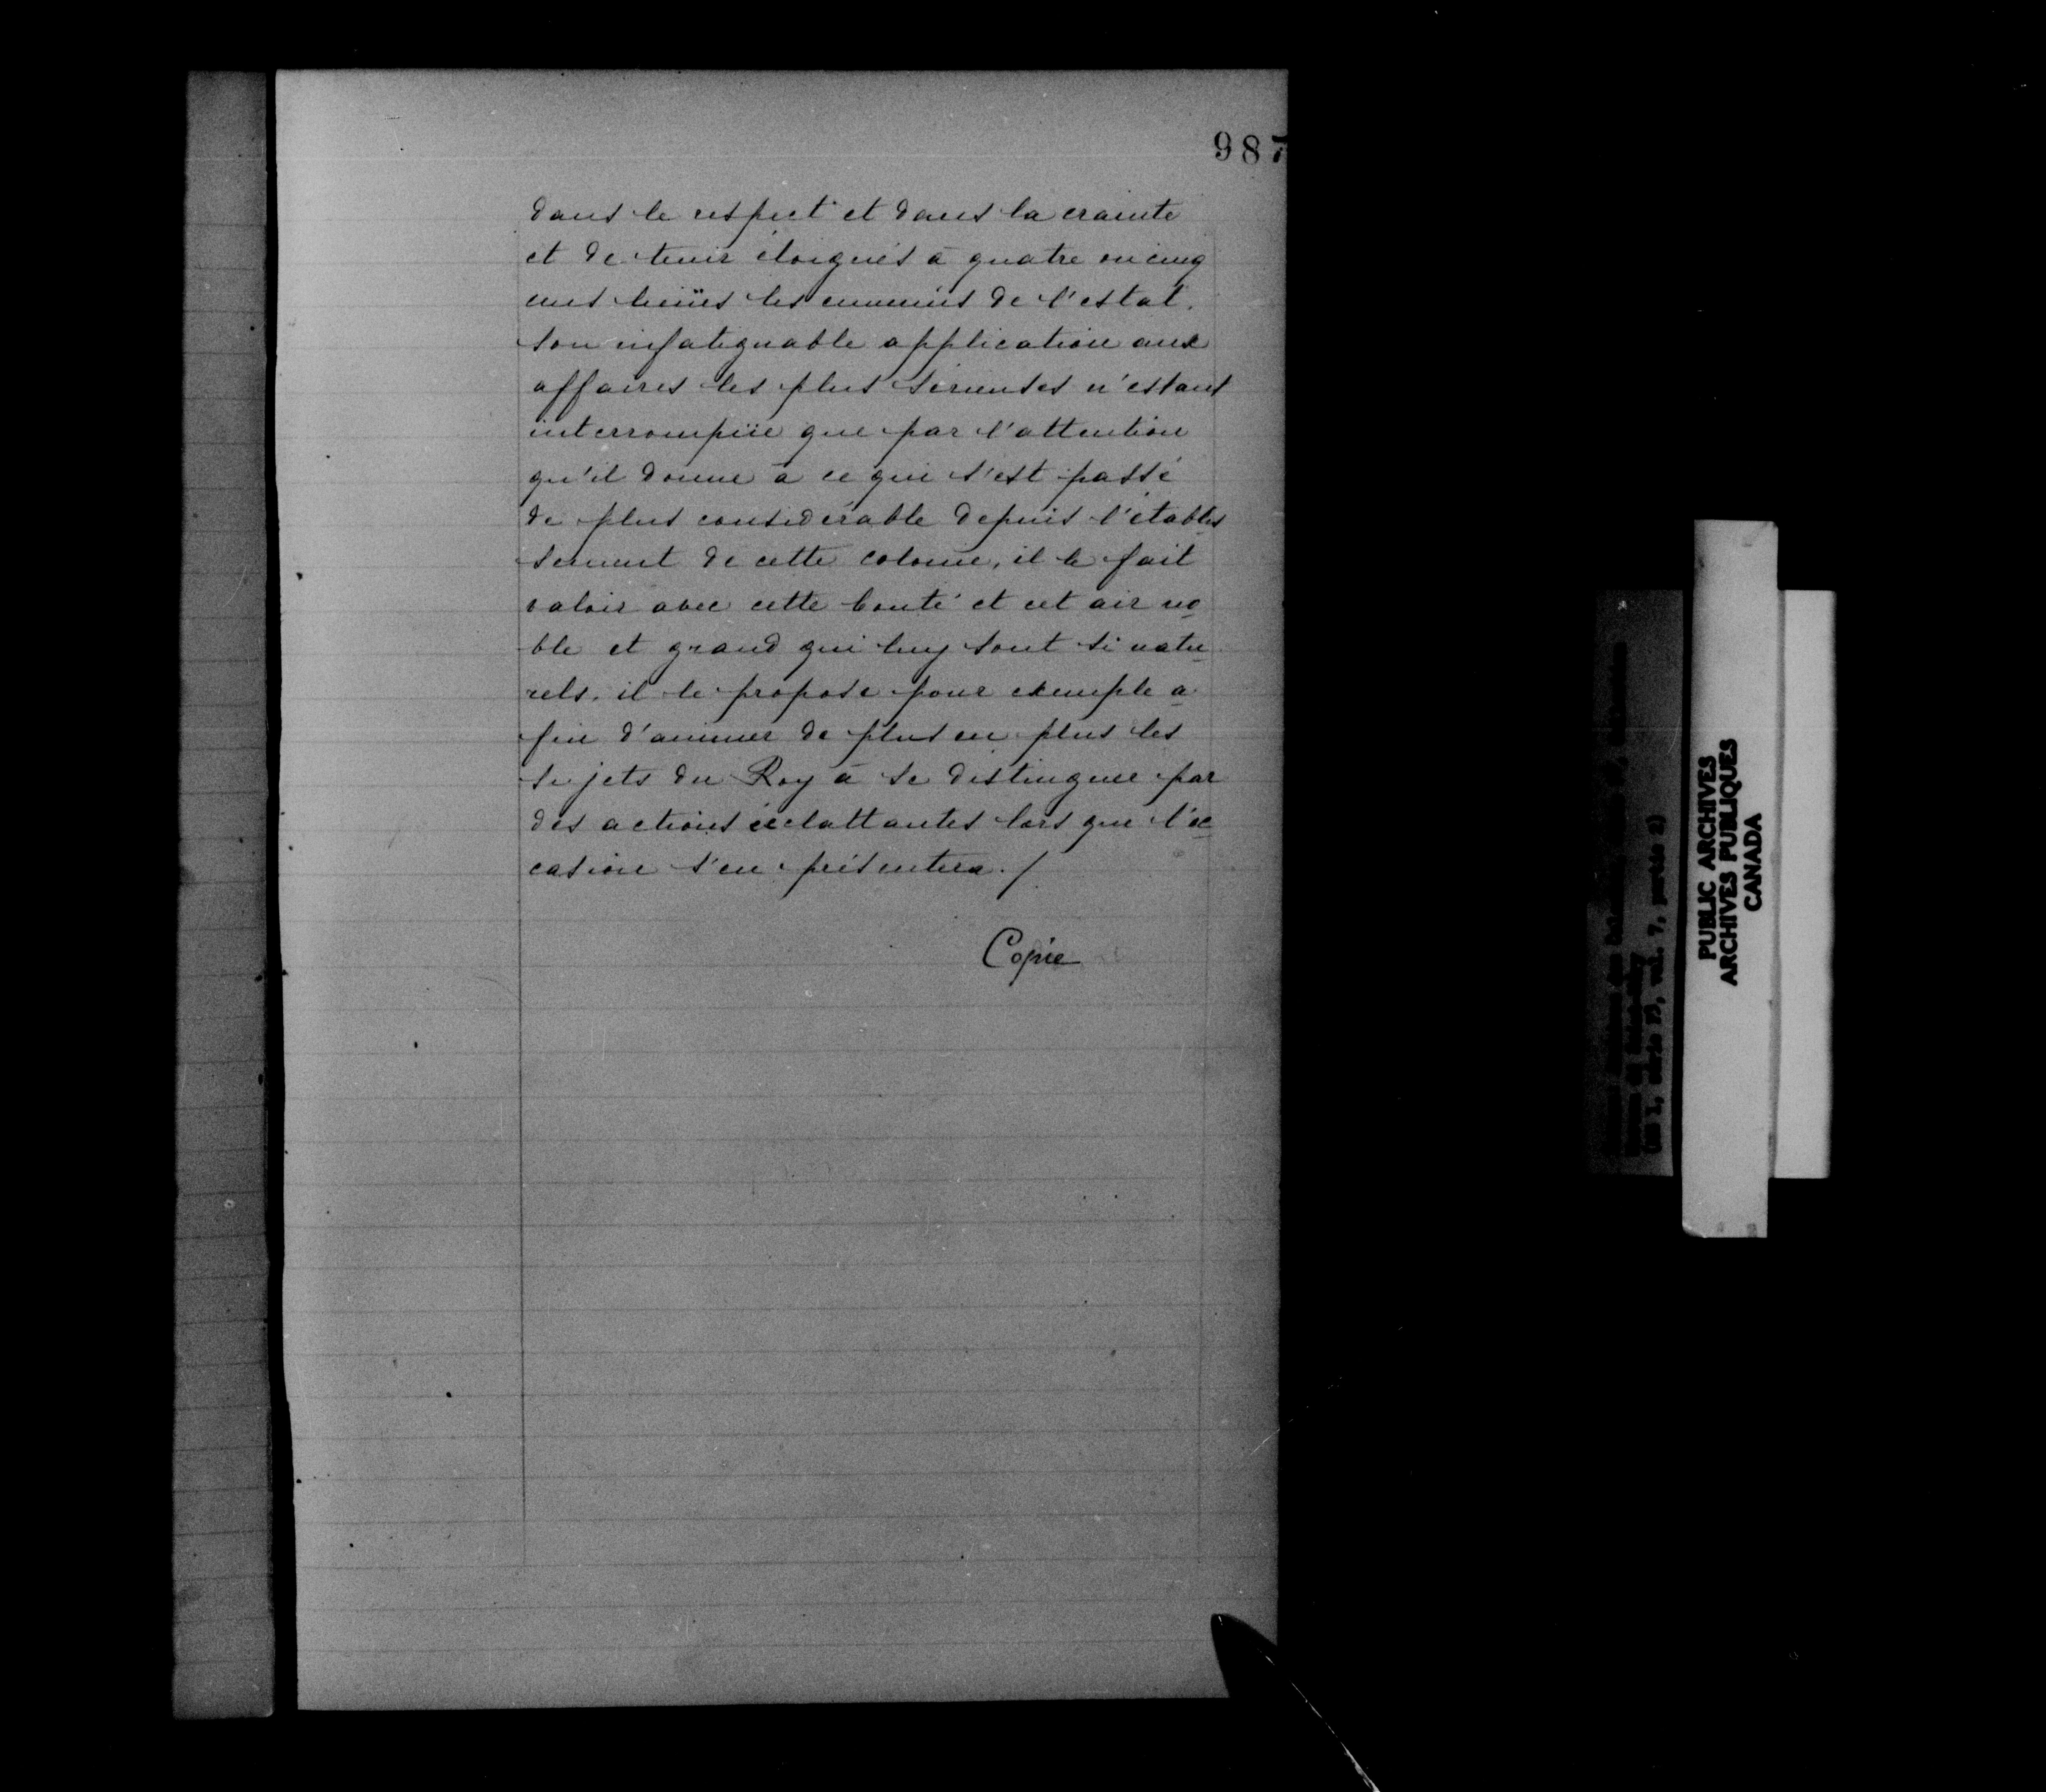 987
dans le respect et dans la crainte
et de tenir éloignés à quatre ou cinq
cens lieües les ennemis de l'estat.
Son infatiguable application aux
affaires les plus serieuses n'estant
interrompüe que par l'attention
qu'il donne à ce qui s'est passé
de plus considérable depuis l'établis
sement de cette colonie, il le fait
valoir avec cette bonté et cet air no
ble et grand qui luy sont si natu
rels. il le propose pour exemple a
fin d'animer de plus en plus les
sujets du Roy à se distinguer par
des actions éclattantes lors que l'oc
casion s'en présentera./
Copie
PUBLIC ARCHIVES
ARCHIVES PUBLIQUES
CANADA
vol. 7, partie 2)